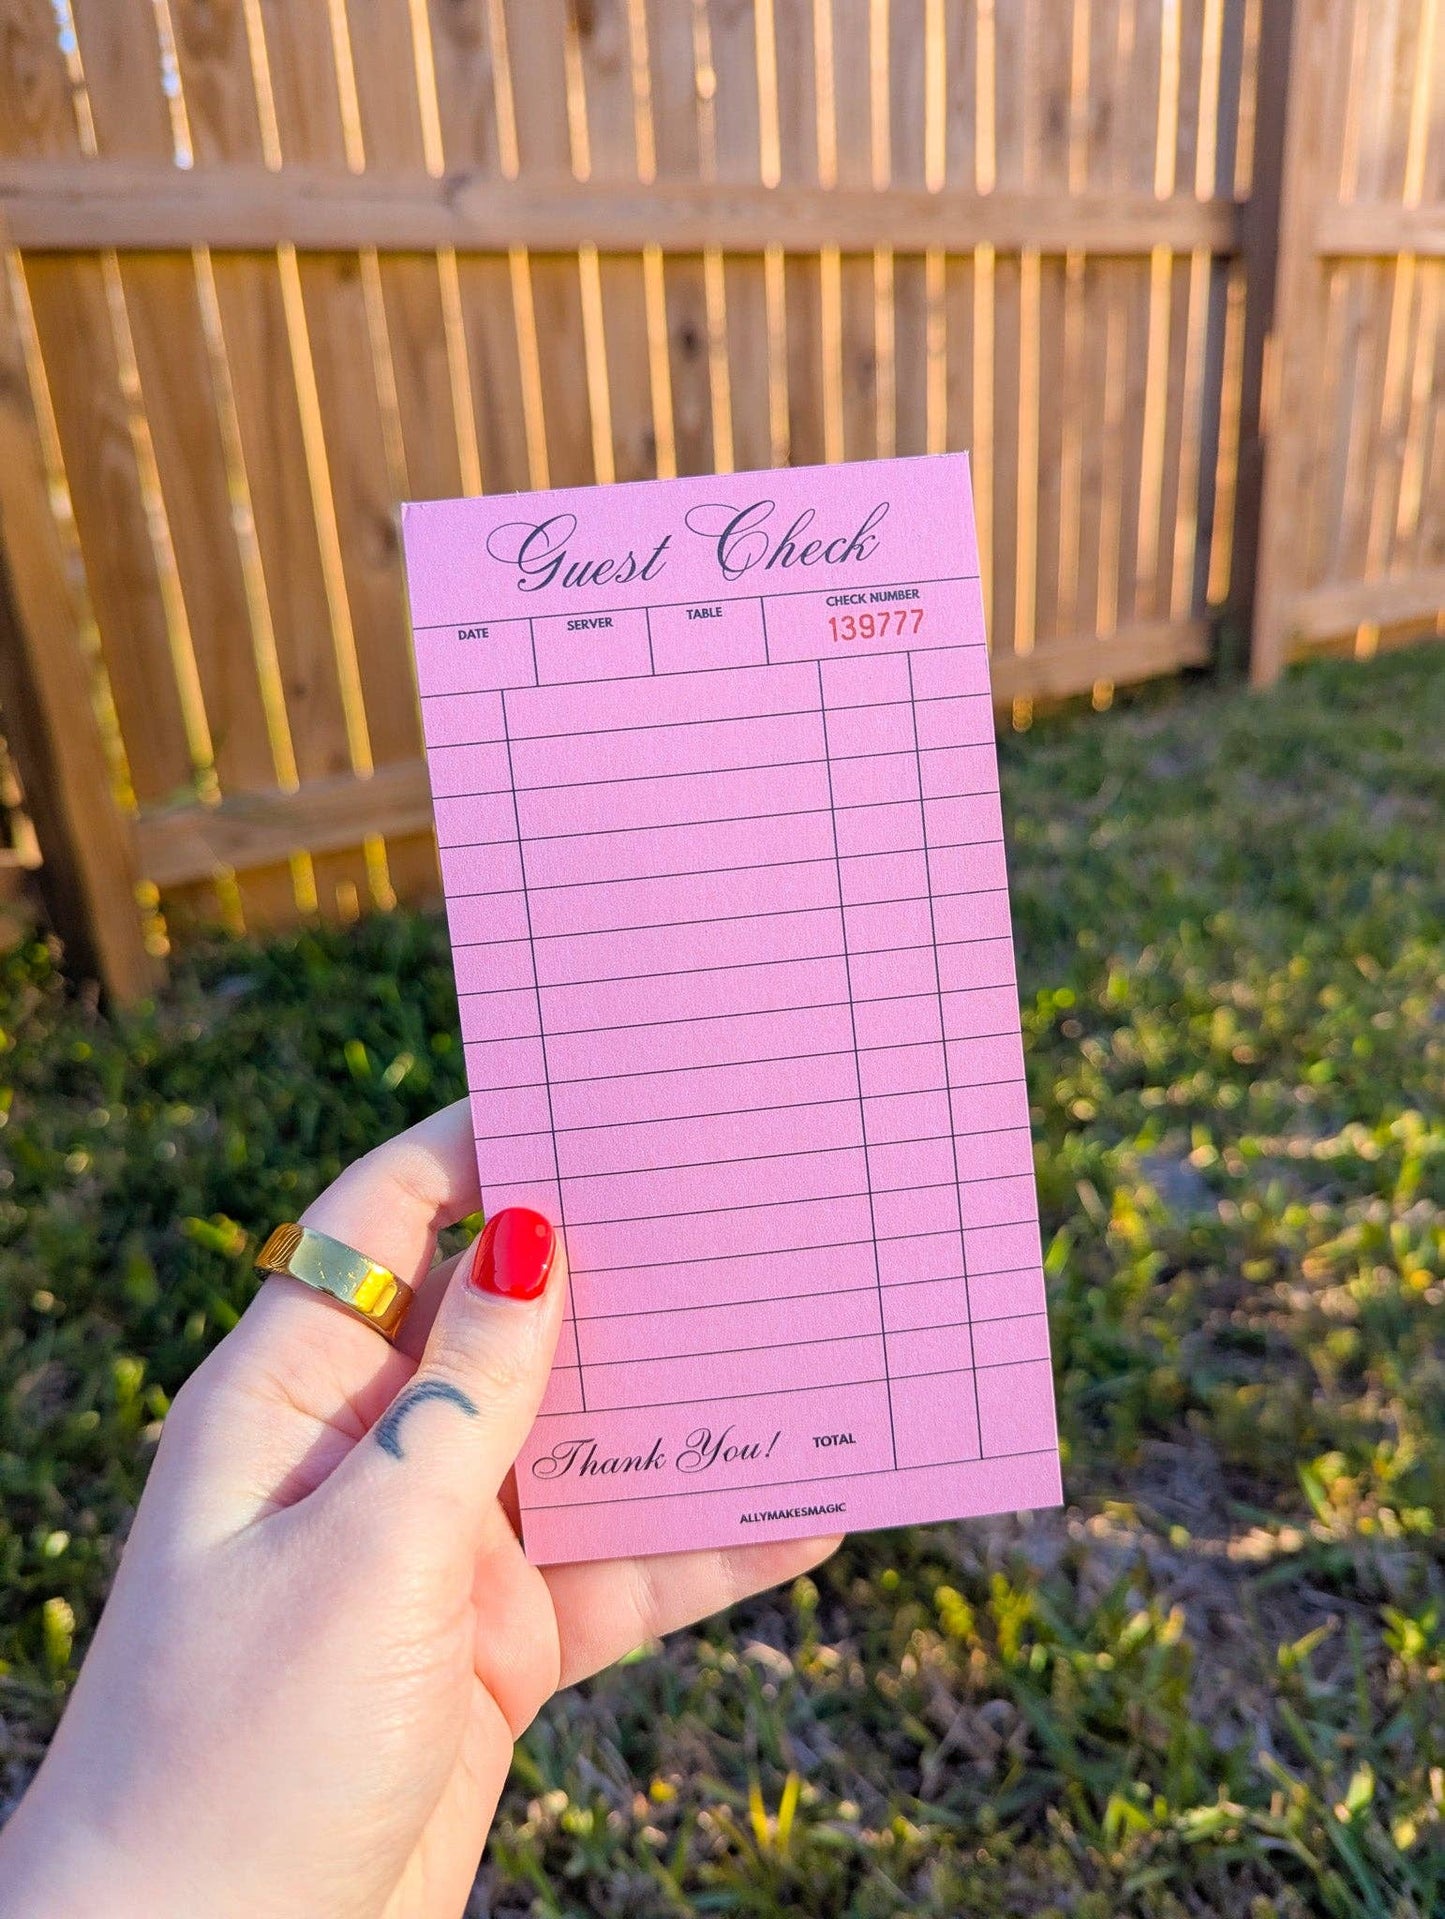 Guest Check
DATE SERVER TABLE CHECK NUMBER
139777
Thank You! TOTAL
ALLYMAKESMAGIC